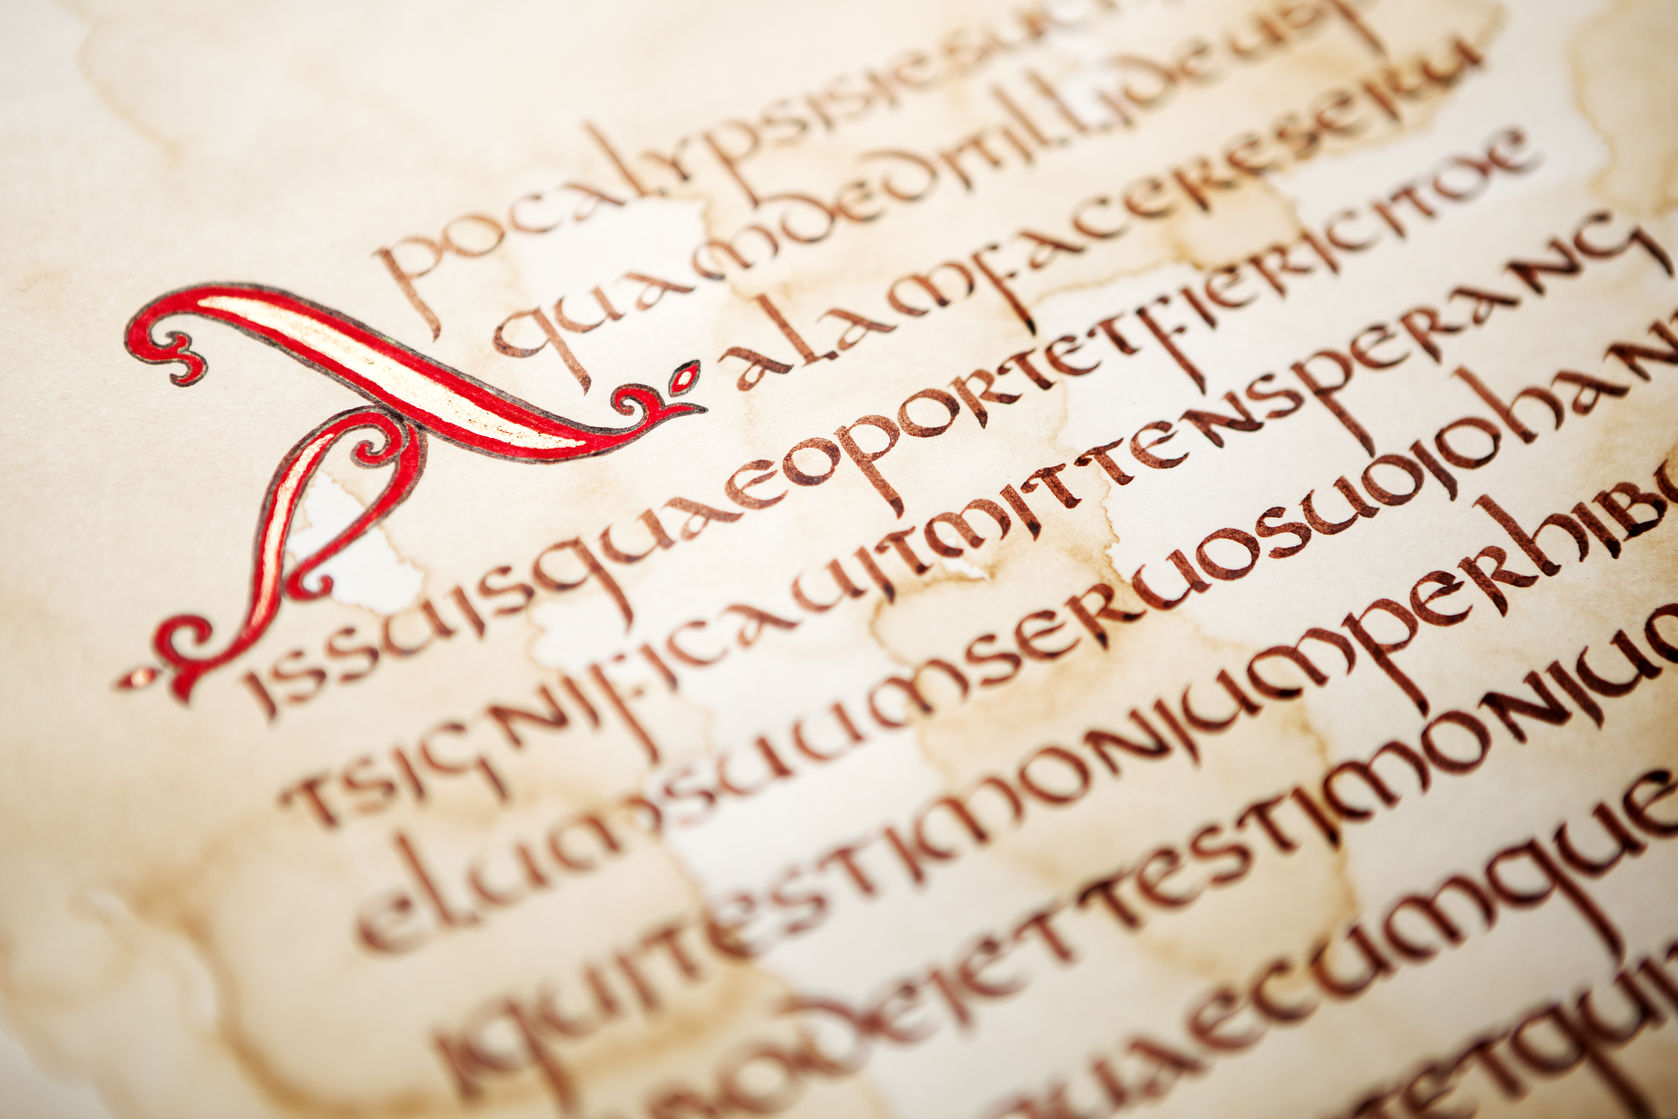 Apocalypsisiesu
quamdeditillideusp
alamfacereseru
issuisquaeoportetfiericitoe
tsignificauitmittensperang
elumsuumseruosuoiohan
iquitestimoniumperhib
bodeiettestimoniu
uaecumque
etqui